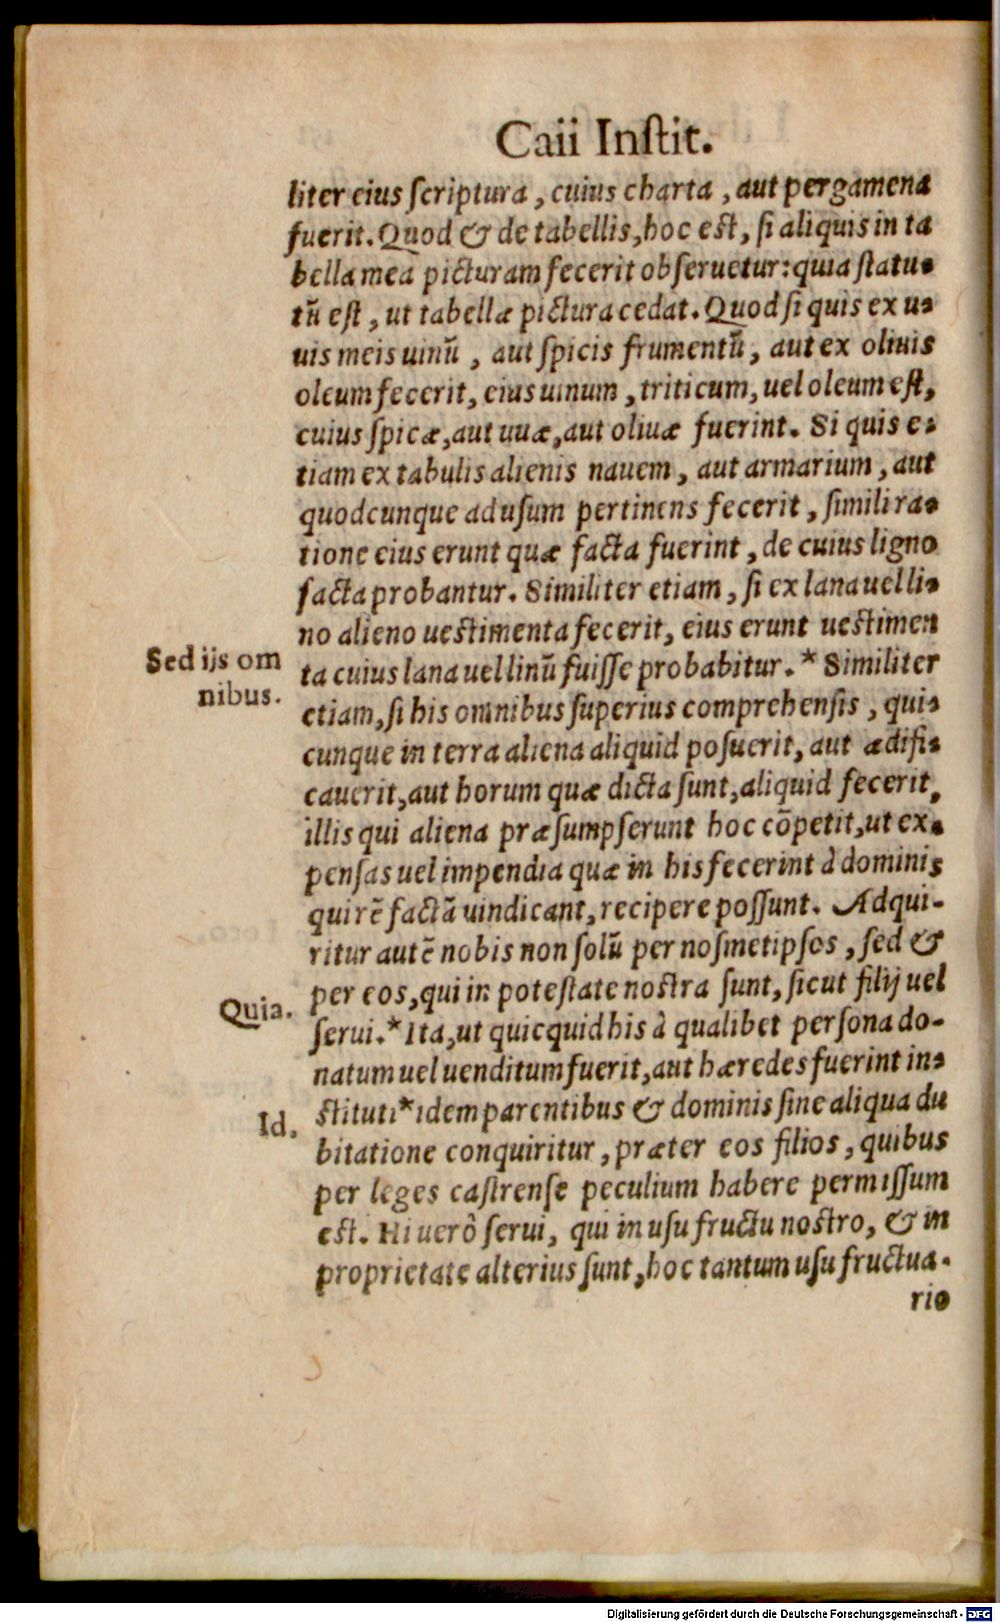 Caii Instit.
liter eius scriptura, cuius charta, aut pergamena
fuerit. Quod & de tabellis, hoc est, si aliquis in ta
bella mea picturam fecerit obseruetur: quia statu-
tũ est, ut tabellæ pictura cedat. Quod si quis ex u-
uis meis uinũ, aut spicis frumentũ, aut ex oliuis
oleum fecerit, eius uinum, triticum, uel oleum est,
cuius spicæ, aut uuæ, aut oliuæ fuerint. Si quis e-
tiam ex tabulis alienis nauem, aut armarium, aut
quodcunque ad usum pertinens fecerit, simili ra-
tione eius erunt quæ facta fuerint, de cuius ligno
facta probantur. Similiter etiam, si ex lana uel li-
no alieno uestimenta fecerit, eius erunt uestimen
Sed ijs om
nibus.
ta cuius lana uel linũ fuisse probabitur. * Similiter
etiam, si his omnibus superius comprehensis, qui-
cunque in terra aliena aliquid posuerit, aut ædifi-
cauerit, aut horum quæ dicta sunt, aliquid fecerit,
illis qui aliena præsumpserunt hoc cõpetit, ut ex-
pensas uel impendia quæ in his fecerint à dominis
qui rẽ factã uindicant, recipere possunt. Adqui-
ritur autẽ nobis non solũ per nosmetipsos, sed &
per eos, qui in potestate nostra sunt, sicut filij uel
Quia.
serui. * Ita, ut quicquid his à qualibet persona do-
natum uel uenditum fuerit, aut hæredes fuerint in-
Id.
stituti * idem parentibus & dominis sine aliqua du
bitatione conquiritur, præter eos filios, quibus
per leges castrense peculium habere permissum
est. Hi uerò serui, qui in usu fructu nostro, & in
proprietate alterius sunt, hoc tantum usu fructua-
rio
Digitalisierung gefördert durch die Deutsche Forschungsgemeinschaft - DFG